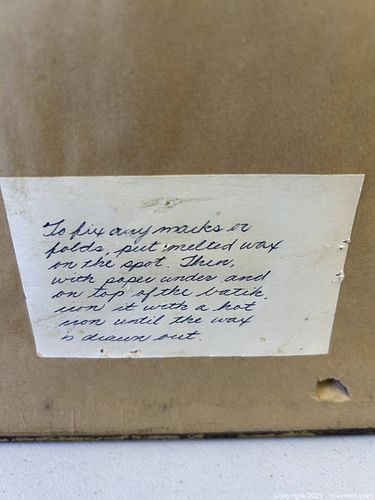 To fix any marks or
folds, put melted wax
on the spot. Then,
with paper under and
on top of the batik,
iron it with a hot
iron until the wax
is drawn out.